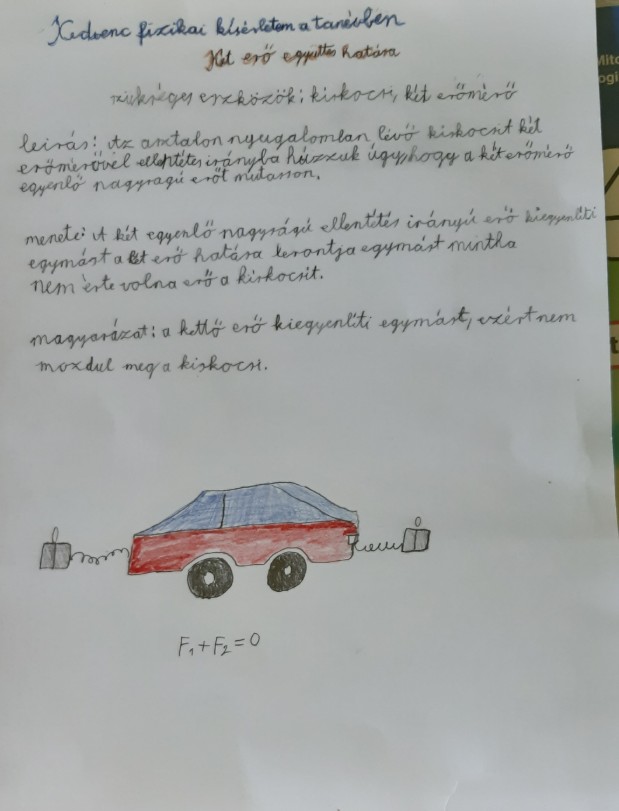 Kedvenc fizikai kísérletem a tanévben
Két erő együttes határa
szükséges eszközök: kiskocsi, két erőmérő
leírás: Az asztalon nyugalomban lévő kiskocsit két
erőmérővel ellentétes irányba húzzuk úgy, hogy a két erőmérő
egyenlő nagyságú erőt mutasson.
menete: A két egyenlő nagyságú ellentétes irányú erő kiegyenlíti
egymást a két erő hatása lerontja egymást mintha
nem érte volna erő a kiskocsit.
magyarázat: a kettő erő kiegyenlíti egymást, ezért nem
mozdul meg a kiskocsi.
F₁+F₂=0